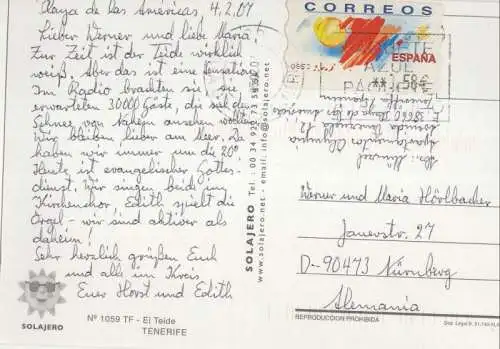 Playa de las Americas 4.2.07
Lieber Werner und liebe Maria!
Zur Zeit ist der Teide wirklich
weiß. Aber das ist eine Sensation.
Im Radio brachten sie, sie
erwarteten 30000 Gäste, die sich den
Schnee von Nahem ansehen wollen.
Wir bleiben lieber am Meer. Da
haben wir immer um die 20°
Heute ist evangelischer Gottes-
dienst. Wir singen beide im
Kirchenchor. Edith spielt die
Orgel - wir sind aktiver als
daheim!
Sehr herzlich grüßen Euch
und all im Kreis
Euer Horst und Edith
SOLAJERO
Nº 1059 TF - El Teide
TENERIFE
SOLAJERO Tel: 00 34 922 73
www.solajero.net - email: info@solajero.net
CORREOS
ESPAÑA
AZUL
**,58€
Apartamentos
38660
Werner und Maria Hörlbacher
Janerstr. 27
D-90473 Nürnberg
Alemania
REPRODUCCION PROHIBIDA